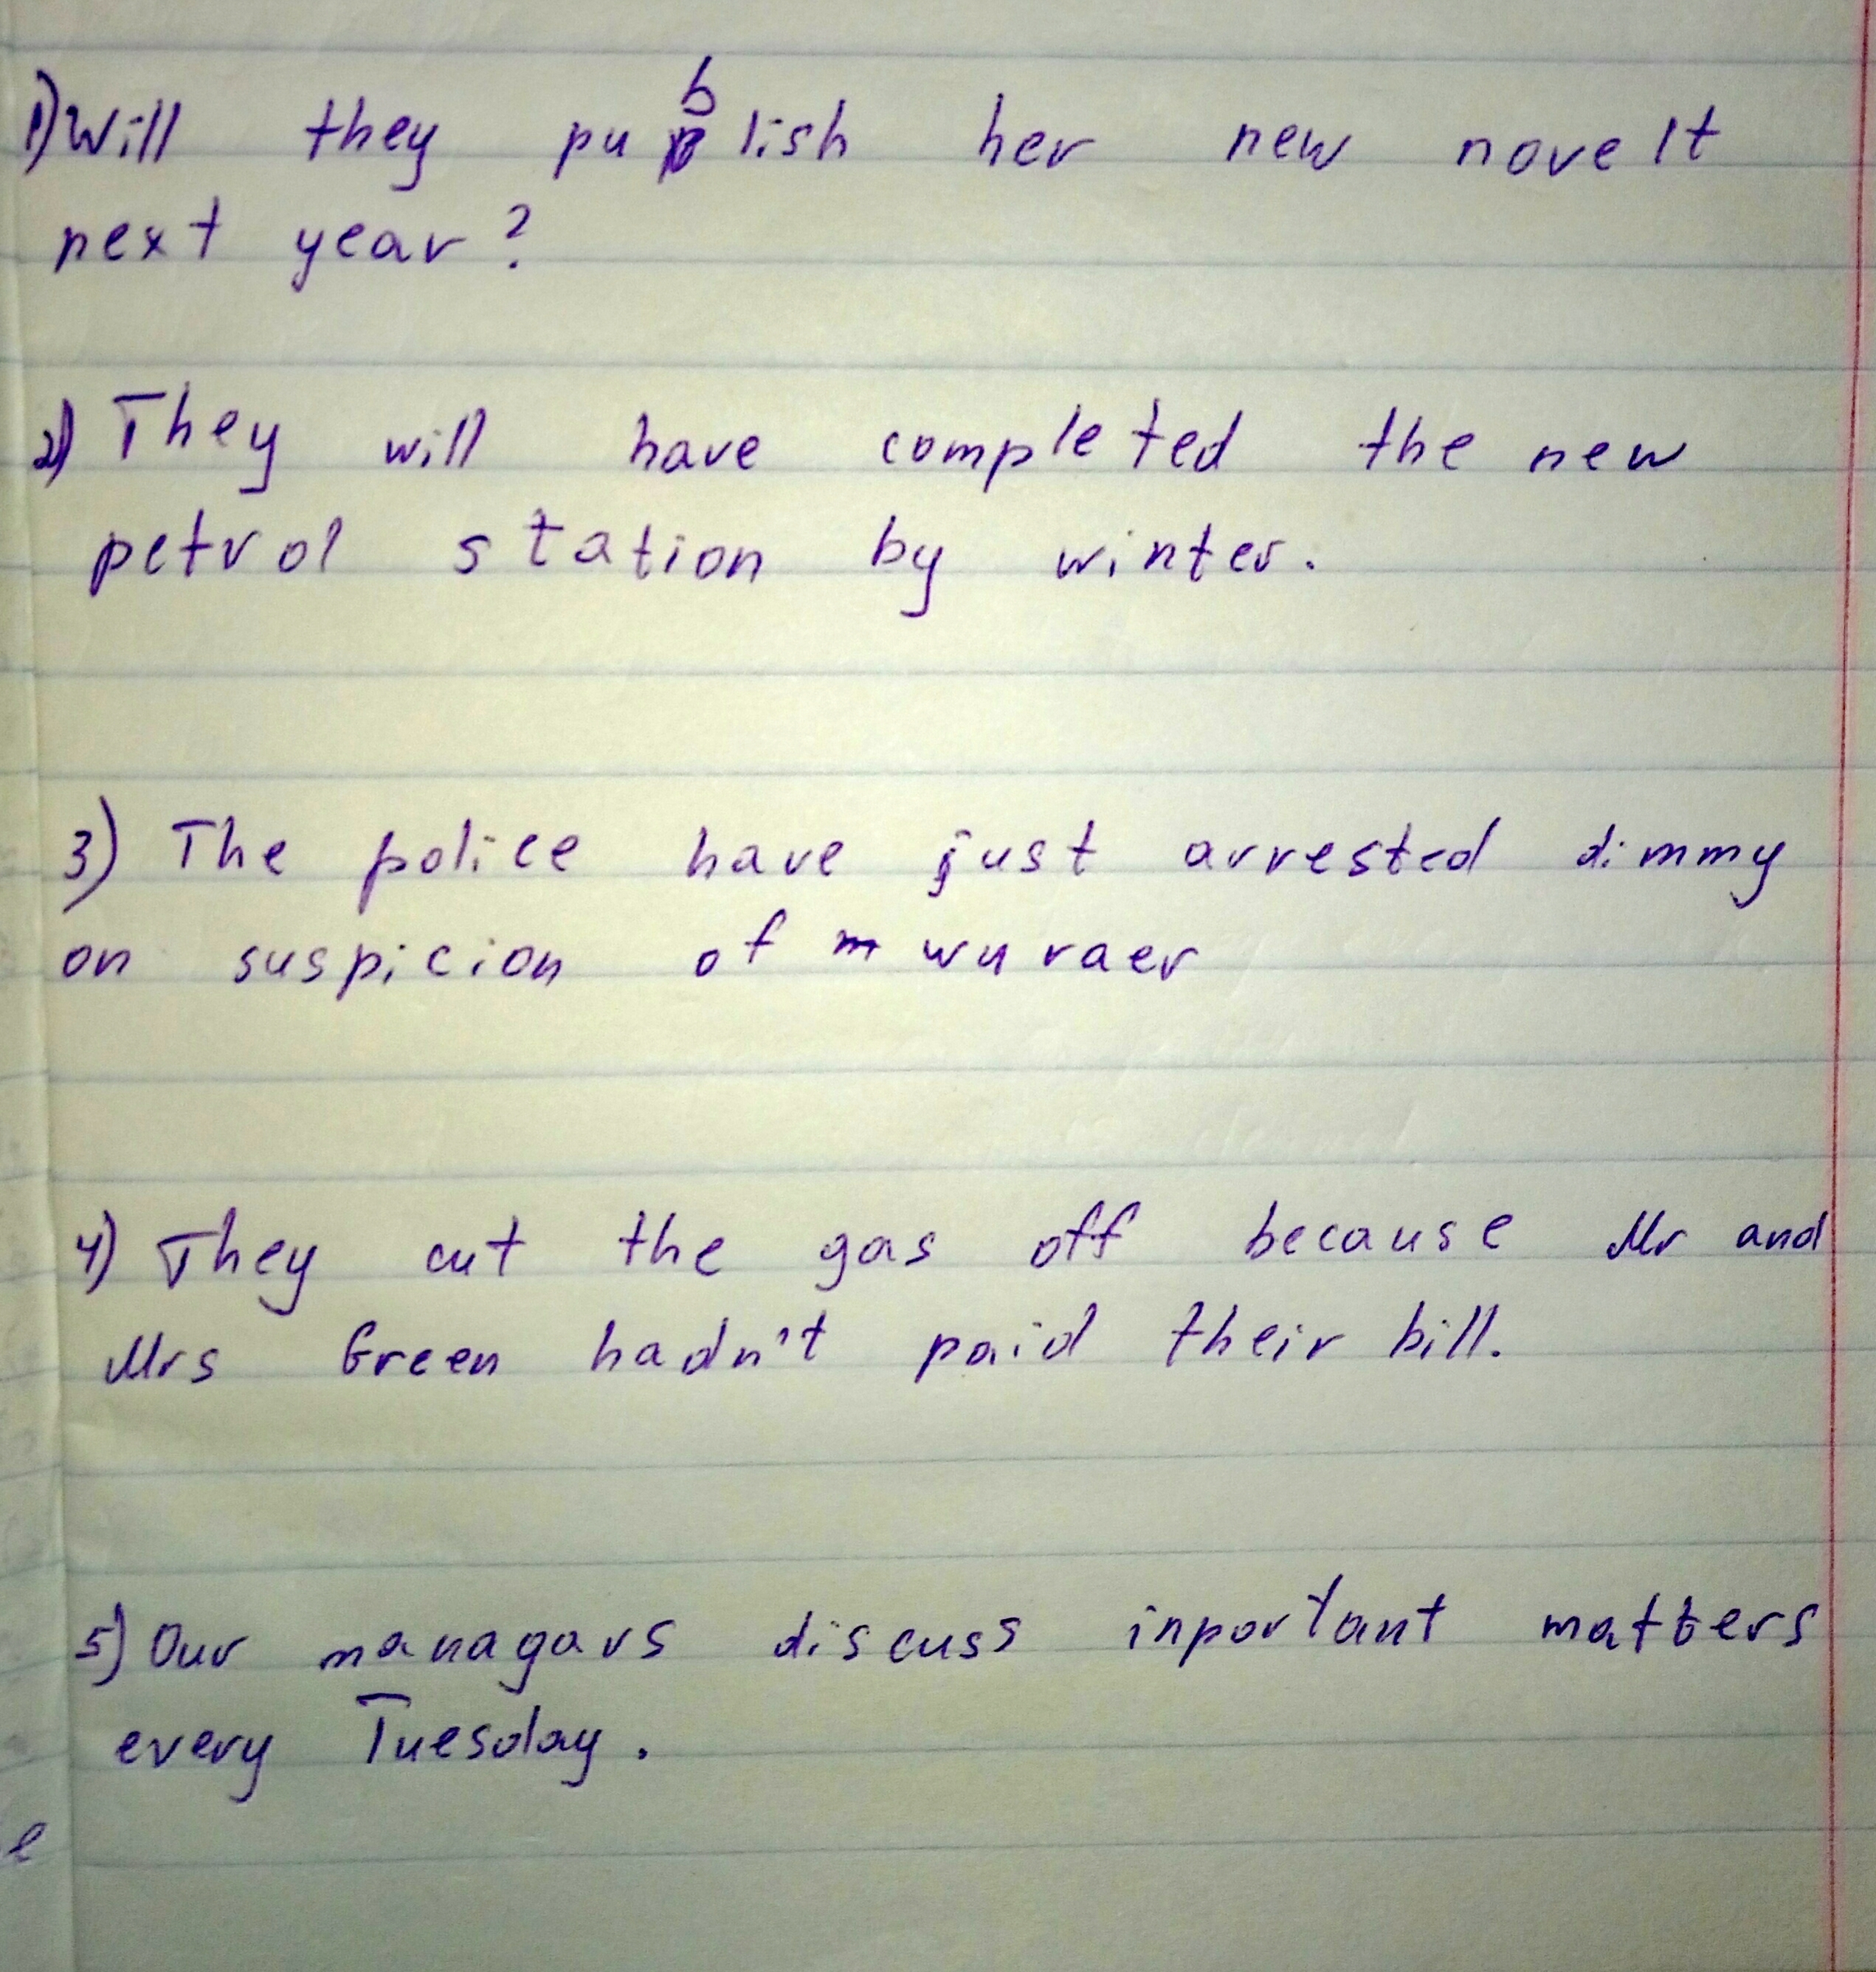 1) Will they publish her new novelt
next year?
2) They will have completed the new
petrol station by winter.
3) The police have just arrested dimmy
on suspicion of wuraer
4) They cut the gas off because Mr and
Mrs Green hadn't paid their bill.
5) Our managars discuss inportant matters
every Tuesday.